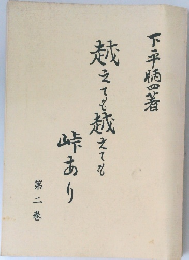 下平〓四著
越えても越えても
峠あり
第二巻